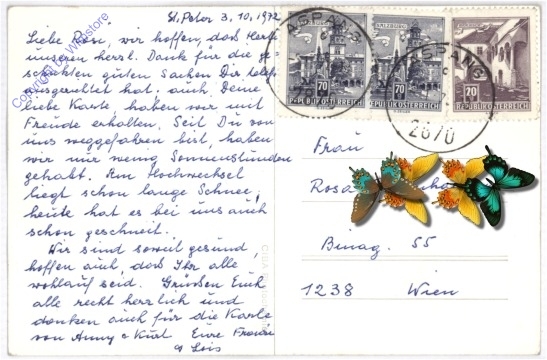 St. Peter 3.10.1972
Liebe Rosi, wir hoffen, dass Herta
unseren herzl. Dank für die ge-
schickten guten Sachen Dir telef.
ausgerichtet hat. auch Deine
liebe Karte, haben wir mit
Freude erhalten. Seit Du von
uns weggefahren bist, haben
wir nur wenig Sonnenstunden
gehabt. Am Hochwechsel
liegt schon lange Schnee,
heute hat es bei uns auch
schon geschneit.
Wir sind soweit gesund
hoffen auch, dass Ihr alle
wohlauf seid. Grüßen Euch
alle recht herzlich und
danken auch für die Karte
von Anny & Kurt. Eure
& Lois
ASPANG
2870
ASPANG
SALZBURG
70
REPUBLIK ÖSTERREICH
SALZBURG
70
REPUBLIK ÖSTERREICH
20
REPUBLIK ÖSTERREICH
Frau
Rosa
Binag. 55
1238 Wien
Copyright by